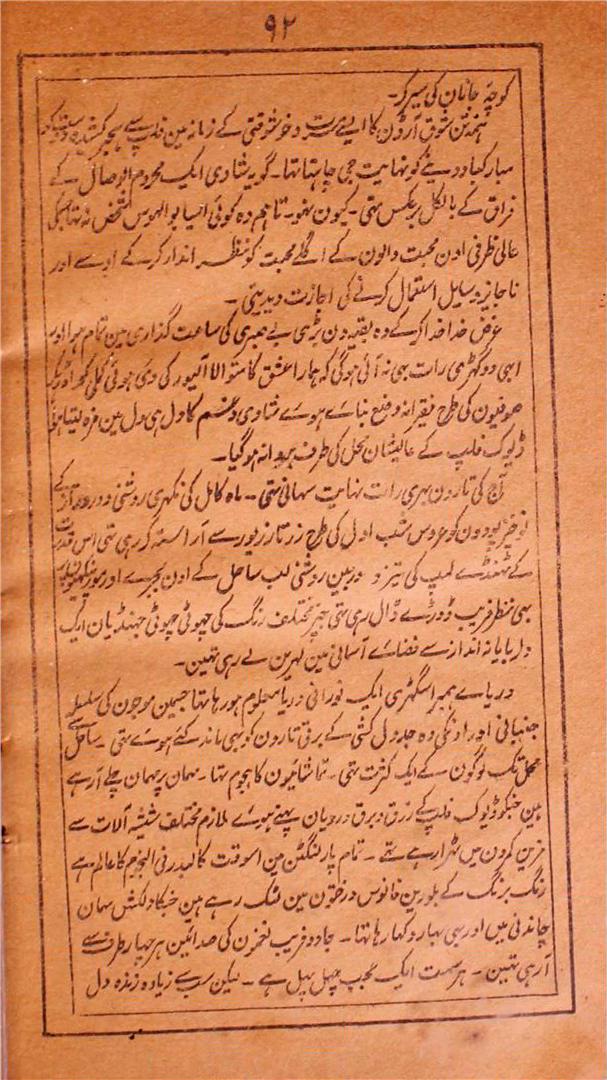 ۹۲
کوچۂ جانان کی سیر کر۔
ہمہ تن شوق آرڈن کا ایسے مسرت و خوشوقتی کے زمانہ مین فلپ سے ہجر کشیدہ دوست کو
مبارکباد دینے کو نہایت جی چاہتا تھا۔ گو یہ شادی ایک محروم الوصال کے
فراق کے بالکل برعکس تھی۔ کیون نہو۔ تاہم وہ کوئی ایسا بوالہوس شخص نہ تھا جسکی
عالی ظرفی اون محبت والون کے اگلے محبت کو نظر انداز کر کے اوسے اور
ناجائز وسایل استعمال کرنے کی اجازت دیدیتی۔
غرض خدا خدا کر کے وہ بقیہ دن بڑی بے صبری کی ساعت گذاری مین تمام ہوا اور
ابھی دو گھڑی رات بھی نہ آئی ہوگی کہ ہمارا عشق کا متوالا آلیور کی دی ہوئی کملی
صوفیون کی طرح فقیرانہ وضع بنائے ہوے شادی و غم کا دل ہی دل مین مزہ لیتا ہوا
ڈیوک فلپ کے عالیشان محل کی طرف روانہ ہو گیا۔
آج کی تارون بھری رات نہایت سہانی تھی۔ ماہ کامل کی نکھری روشنی دور دراز کے
نوخیز پودون کو عروس شب اول کی طرح زرتار زیور سے آراستہ کر رہی تھی اس قدرت
کے ٹھنڈے لمپ کی تیز و دوربین روشنی لب ساحل کے اون بجرے اور مورپنکھیون پر
بھی نظر فریب ڈورے ڈال رہی تھی جنپر مختلف رنگ کی چھوٹی چھوٹی جھنڈیان ایک
دلربایانہ انداز سے فضائے آسمانی مین لہرین لے رہی تھین۔
دریاے ہمبر اسگھڑی ایک نورانی دریا معلوم ہو رہا تھا جسمین موجون کی سلسلہ
جنبانی اور اونکی وہ جدول کشی کے برقی تارون کو بھی ماند کئے ہوے تھی۔ ساحل سے
محل تک لوگون کے ایک کثرت تھی۔ تماشائیون کا ہجوم تھا۔ مہمان پر مہمان چلے آرہے
ہین جنکو ڈیوک فلپ کے زرق و برق وردیان پہنے ہوے ملازم مختلف شیشہ آلات سے
مزین کمرون مین ٹہرا رہے تھے۔ تمام پارلنگٹن مین اسوقت کالبدر فی النجوم کا عالم ہے
رنگ برنگ کے بلورین فانوس درختون مین لٹک رہے ہین جنکا دلکش سمان
چاندنی مین اور بھی بہار دکھا رہا تھا۔ جادو فریب نغمون کی صدائین ہر چہار طرف سے
آرہی تھین۔ ہر سمت ایک عجب چہل پہل ہے۔ لیکن سب سے زیادہ زندہ دل